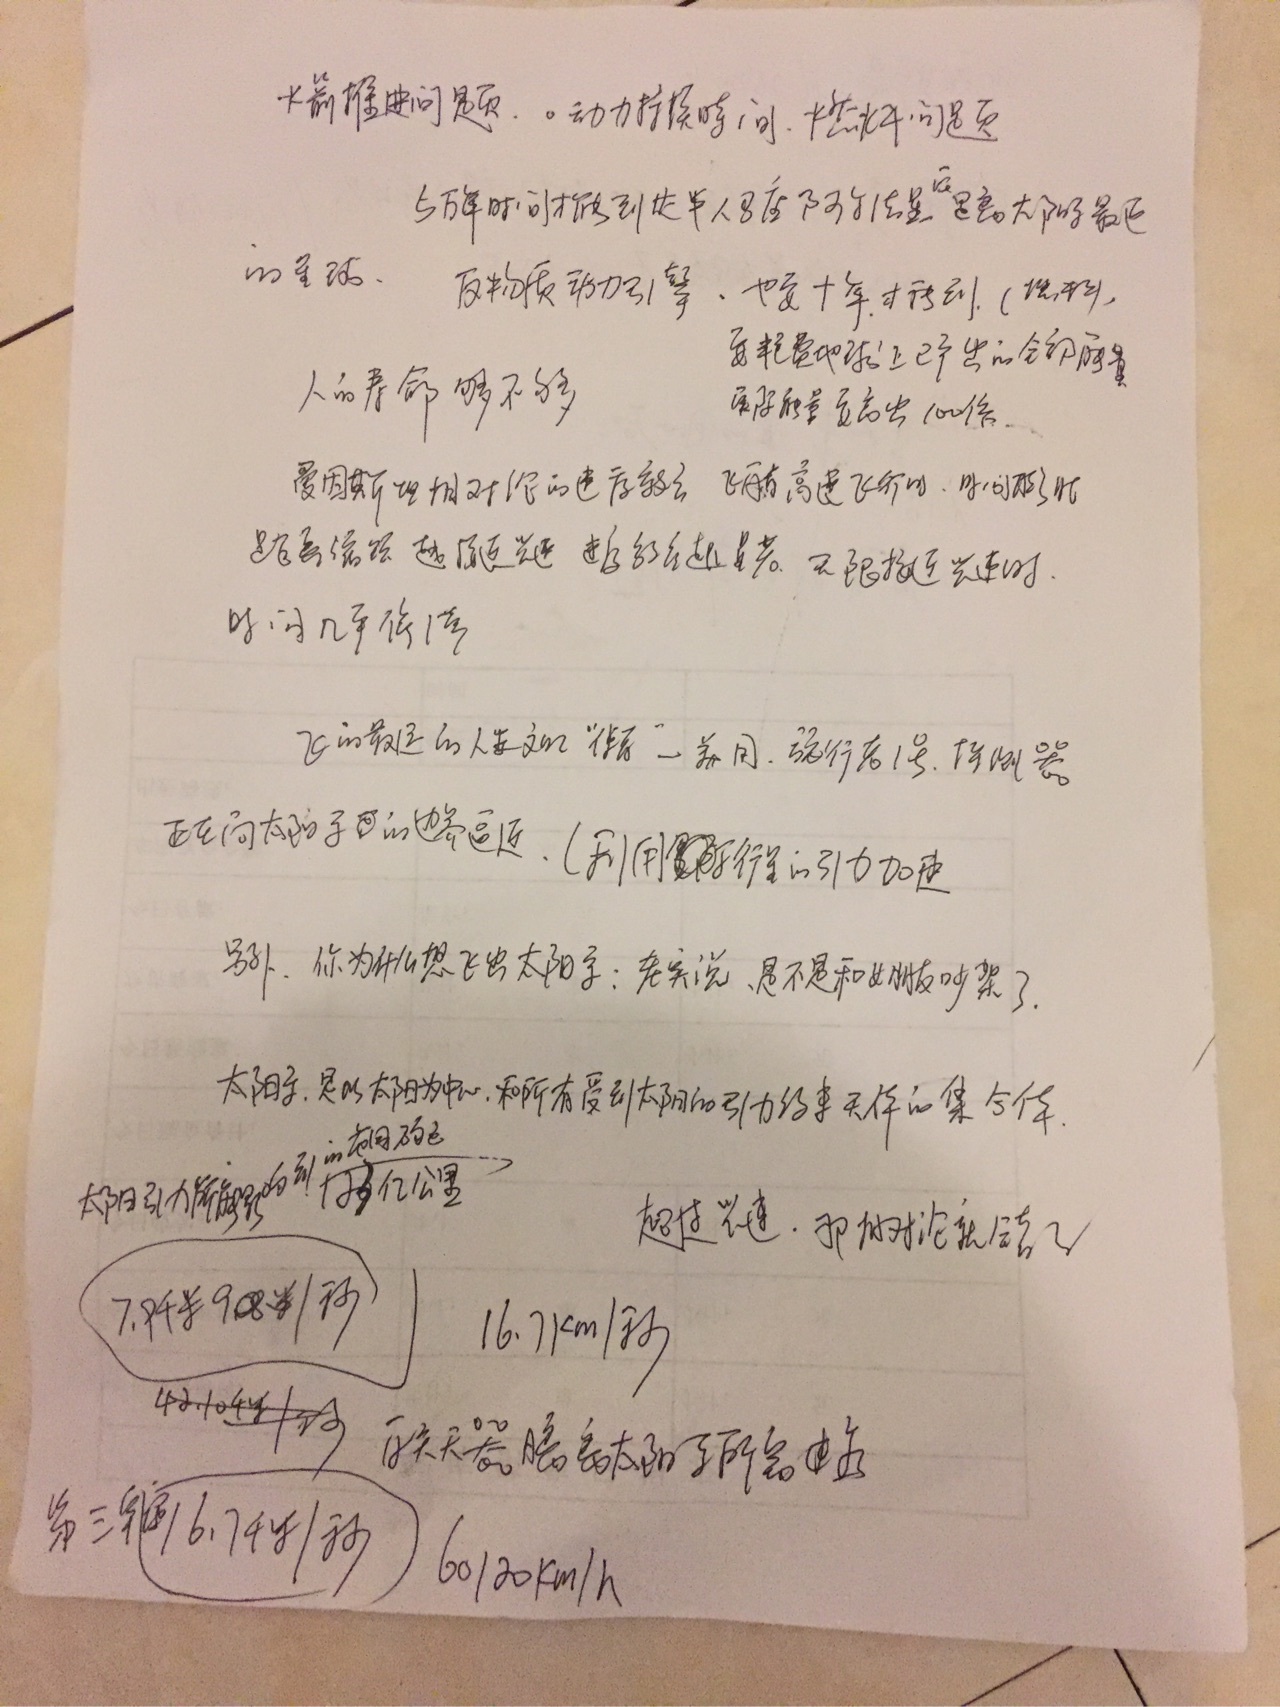 火箭推进问题. 动力持续时间. 燃料问题
5万年时间才能到达半人马座阿尔法星 它是离太阳系最近
的星球.
反物质动力引擎. 也要十年才能到. (燃料,
要耗费地球上已产出的全部能量
能量要高出100倍.
人的寿命够不够
爱因斯坦相对论的速度效应 飞船高速飞行时. 时间
越接近光速 速度效应越显著. 无限接近光速时.
时间几乎停滞
飞的最远的人类文明"使者" 一美国. 旅行者1号. 探测器
正在向太阳系的边界逼近. (利用行星的引力加速
另外. 你为什么想飞出太阳系: 老实说、是不是和女朋友吵架了.
太阳系. 是以太阳为中心. 和所有受到太阳的引力约束天体的集合体.
太阳引力能影响到的范围
亿公里
超过光速. 那相对论就
7.9千米 /秒
16.7km/秒
42.1千米/秒
航天器脱离太阳系所需速度
第三宇宙 16.7千米/秒
60120km/h